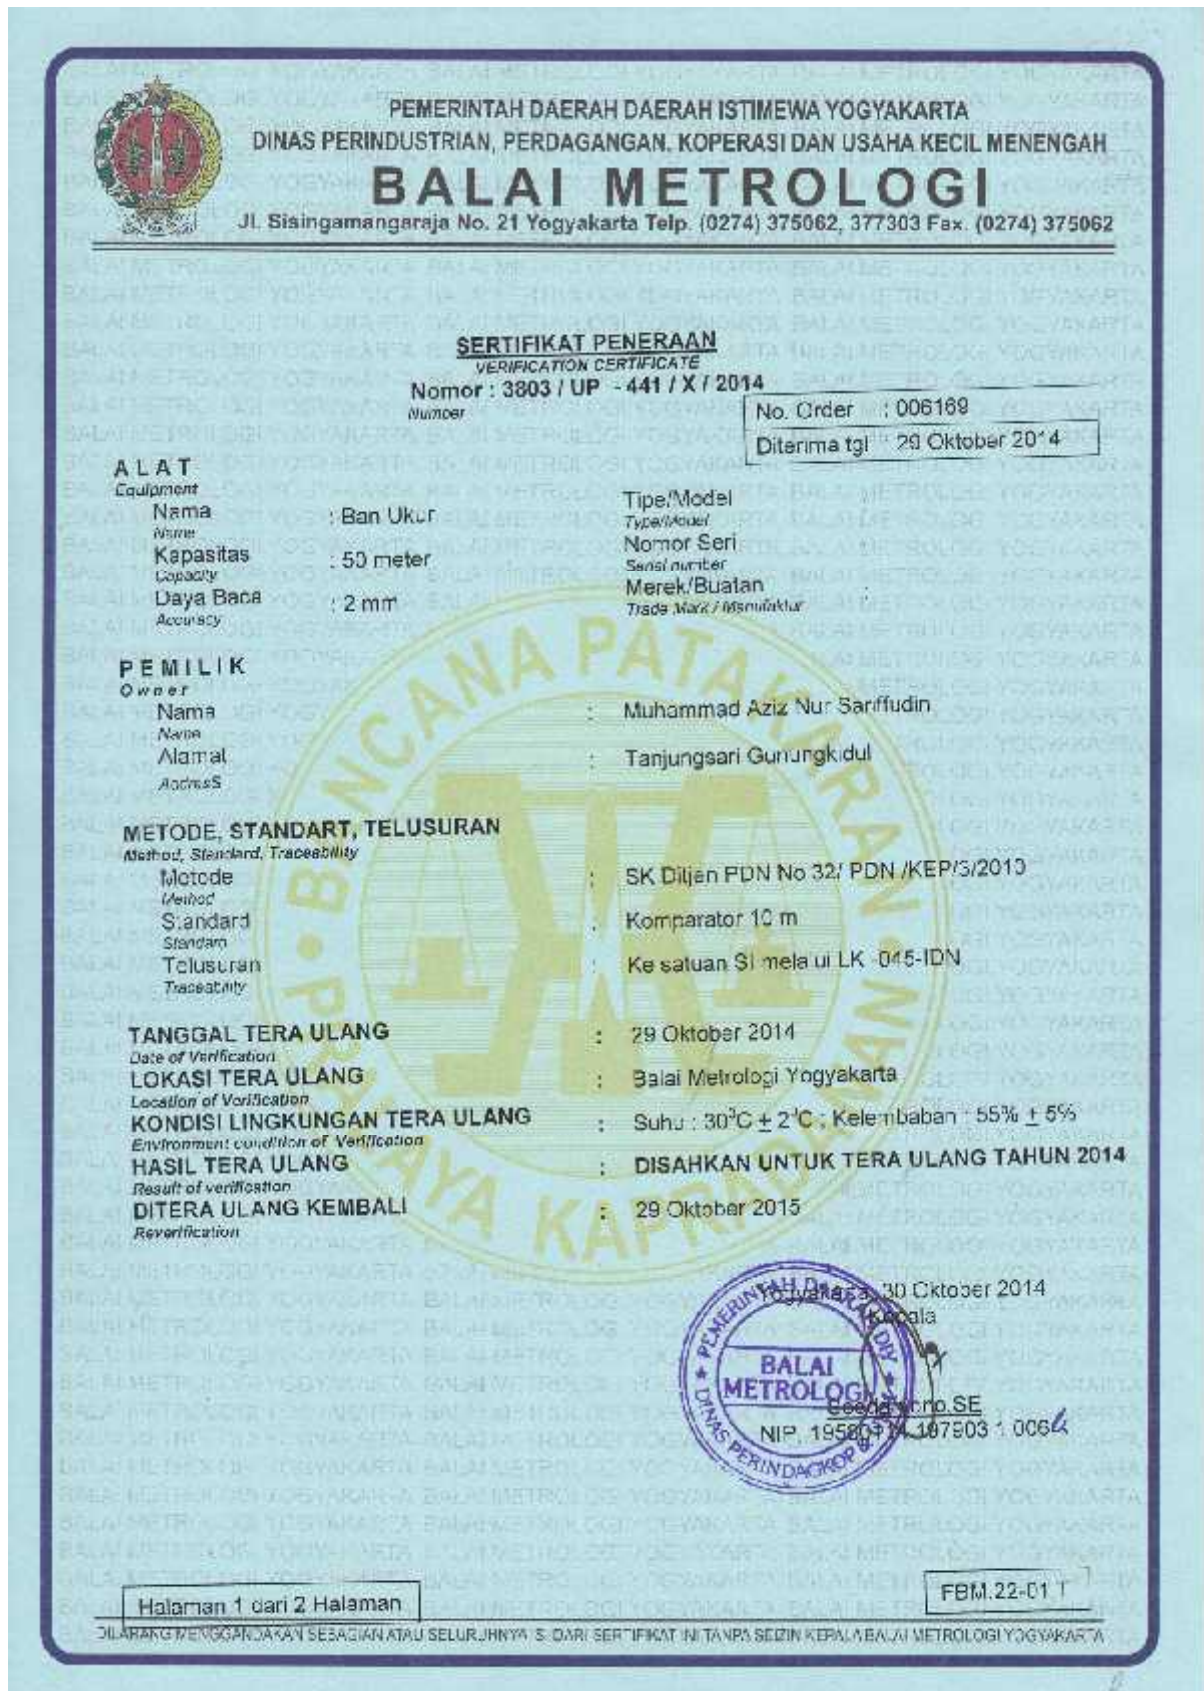 PEMERINTAH DAERAH DAERAH ISTIMEWA YOGYAKARTA
DINAS PERINDUSTRIAN, PERDAGANGAN, KOPERASI DAN USAHA KECIL MENENGAH
BALAI METROLOGI
Jl. Sisingamangaraja No. 21 Yogyakarta Telp. (0274) 375062, 377303 Fax. (0274) 375062
SERTIFIKAT PENERAAN
VERIFICATION CERTIFICATE
Nomor : 3803 / UP - 441 / X / 2014
Number
No. Order : 006169
Diterima tgl 29 Oktober 2014
ALAT
Equipment
Nama : Ban Ukur
Name
Kapasitas : 50 meter
Capacity
Daya Baca : 2 mm
Accuracy
Tipe/Model :
Type/Model
Nomor Seri :
Serial number
Merek/Buatan :
Trade Mark / Manufaktur
PEMILIK
Owner
Nama : Muhammad Aziz Nur Sariffudin
Name
Alamat : Tanjungsari Gunungkidul
AddresS
METODE, STANDART, TELUSURAN
Method, Standard, Traceability
Metode : SK Ditjen PDN No 32/ PDN /KEP/3/2010
Method
Standard : Komparator 10 m
Standard
Telusuran : Ke satuan SI melalui LK -045-IDN
Traceability
TANGGAL TERA ULANG : 29 Oktober 2014
Date of Verification
LOKASI TERA ULANG : Balai Metrologi Yogyakarta
Location of Verification
KONDISI LINGKUNGAN TERA ULANG : Suhu : 30°C ± 2°C ; Kelembaban : 55% ± 5%
Environment condition of Verification
HASIL TERA ULANG : DISAHKAN UNTUK TERA ULANG TAHUN 2014
Result of verification
DITERA ULANG KEMBALI : 29 Oktober 2015
Reverification
BANCANA PATAKARAN
PRALAYA KAPRADANAN
Yogyakarta, 30 Oktober 2014
Kepala
PEMERINTAH DAERAH DIY
BALAI
METROLOGI
DINAS PERINDAGKOP &
SE
NIP. 19580114 197903 1 006
Halaman 1 dari 2 Halaman
FBM.22-01.T
DILARANG MENGGANDAKAN SEBAGIAN ATAU SELURUHNYA ISI DARI SERTIFIKAT INI TANPA SEIZIN KEPALA BALAI METROLOGI YOGYAKARTA